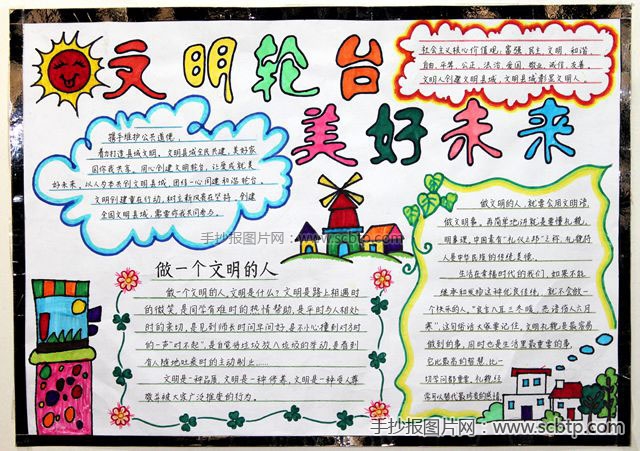 文明轮台
美好未来
社会主义核心价值观，富强、民主、文明、和谐、
自由、平等、公正、法治、爱国、敬业、诚信、友善，
文明人创建文明县城，文明县城彰显文明人。
携手维护公共道德，
着力打造县城文明。文明县城全民共建，美好家
园你我共享，用心创建文明轮台，让爱成就美
好未来，以人为本共创文明县城，团结一心同建和谐轮台。
文明创建重在行动，树立新风贵在坚持，创建
全国文明县城，需要你我共同努力。
手抄报图片网：www.scbtp.com
做一个文明的人
做一个文明的人，文明是什么？文明是路上相遇时
的微笑，是同学有难时的热情帮助，是平时与人相处
时的亲切，是见到师长时问早问好，是不小心撞到对方时
的一声“对不起”，是自觉将垃圾放入垃圾的举动，是看到
有人随地吐痰时的主动制止……
文明是一种品质，文明是一种修养，文明是一种受人尊
敬并被大家广泛推受的行为。
做文明的人，就要会用文明语，
做文明事。再简单地讲就是要懂礼貌，
明事理，中国素有“礼仪之邦”之称，礼貌待
人是中华民族的传统美德。
生活在幸福时代的我们，如果不能
继承和发扬这种优良传统，就不会做一
个快乐的人。“良言入耳三冬暖，恶语伤人六月
寒”，这句俗语大家要记住，文明礼貌是最容易
做到的事，同时也是生活里最重要的事，
它比最高的智慧，比一
切学问都重要，礼貌经
常可以替代最珍贵的感情。
手抄报图片网：www.scbtp.com